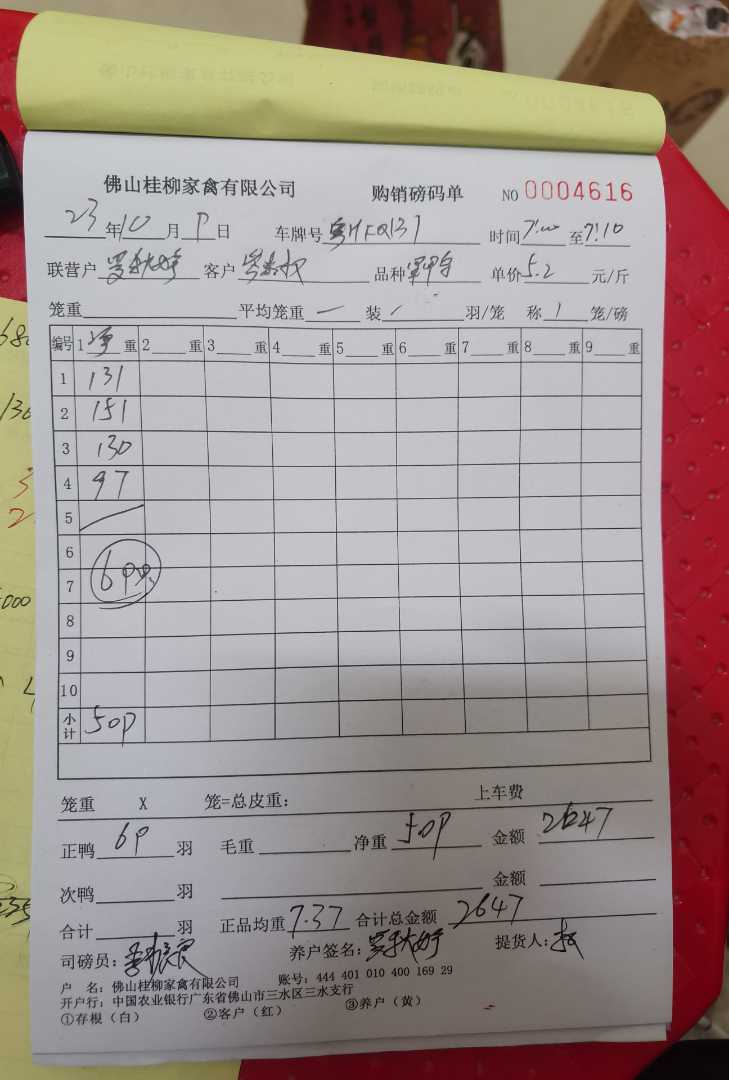 佛山桂柳家禽有限公司 购销磅码单 NO 0004616
23年10月9日 车牌号粤HFQ137 时间7:00至7:10
联营户 客户 品种 单价5.2元/斤
笼重 平均笼重一 装/ 羽/笼 称1笼/磅
编号 1净重 2重 3重 4重 5重 6重 7重 8重 9重
1 131
2 151
3 130
4 97
5
6
7 69只
8
9
10
小计 509
笼重 X 笼=总皮重: 上车费
正鸭69羽 毛重 净重509 金额2647
次鸭 羽 金额
合计 羽 正品均重7.37 合计总金额2647
司磅员: 养户签名: 提货人:
户 名: 佛山桂柳家禽有限公司 账号: 444 401 010 400 169 29
开户行: 中国农业银行广东省佛山市三水区三水支行
①存根(白) ②客户(红) ③养户(黄)